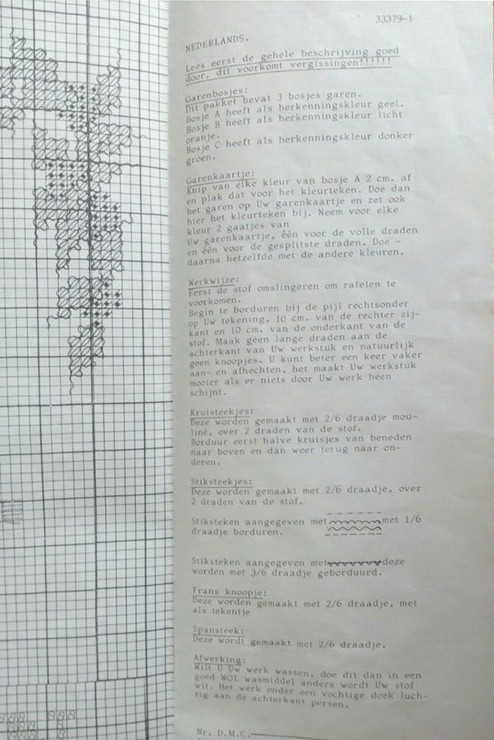 33379-1
NEDERLANDS.
Lees eerst de gehele beschrijving goed
door, dit voorkomt vergissingen!!!!!!
Garenbosjes:
Dit pakket bevat 3 bosjes garen.
Bosje A heeft als herkenningskleur geel.
Bosje B heeft als herkenningskleur licht
oranje.
Bosje C heeft als herkenningskleur donker
groen.
Garenkaartje:
Knip van elke kleur van bosje A 2 cm. af
en plak dat voor het kleurteken. Doe dan
het garen op Uw garenkaartje en zet ook
hier het kleurteken bij. Neem voor elke
kleur 2 gaatjes van
Uw garenkaartje, één voor de volle draden
en één voor de gesplitste draden. Doe -
daarna hetzelfde met de andere kleuren.
Werkwijze:
Eerst de stof omslingeren om rafelen te
voorkomen.
Begin te borduren bij de pijl rechtsonder
op Uw tekening, 10 cm. van de rechter zij-
kant en 10 cm. van de onderkant van de
stof. Maak geen lange draden aan de
achterkant van Uw werkstuk en natuurlijk
geen knoopjes. U kunt beter een keer vaker
aan- en afhechten, het maakt Uw werkstuk
mooier als er niets door Uw werk heen
schijnt.
Kruisteekjes:
Deze worden gemaakt met 2/6 draadje mou-
liné, over 2 draden van de stof.
Borduur eerst halve kruisjes van beneden
naar boven en dan weer terug naar on-
deren.
Stiksteekjes:
Deze worden gemaakt met 2/6 draadje, over
2 draden van de stof.
Stiksteken aangegeven met met 1/6
draadje borduren.
Stiksteken aangegeven met deze
worden met 3/6 draadje geborduurd.
Frans knoopje:
Deze worden gemaakt met 2/6 draadje, met
als tekentje
Spansteek:
Deze wordt gemaakt met 2/6 draadje.
Afwerking:
Wilt U Uw werk wassen, doe dit dan in een
goed WOL wasmiddel anders wordt Uw stof
wit. Het werk onder een vochtige doek luch-
tig aan de achterkant persen.
Nr. D.M.C.